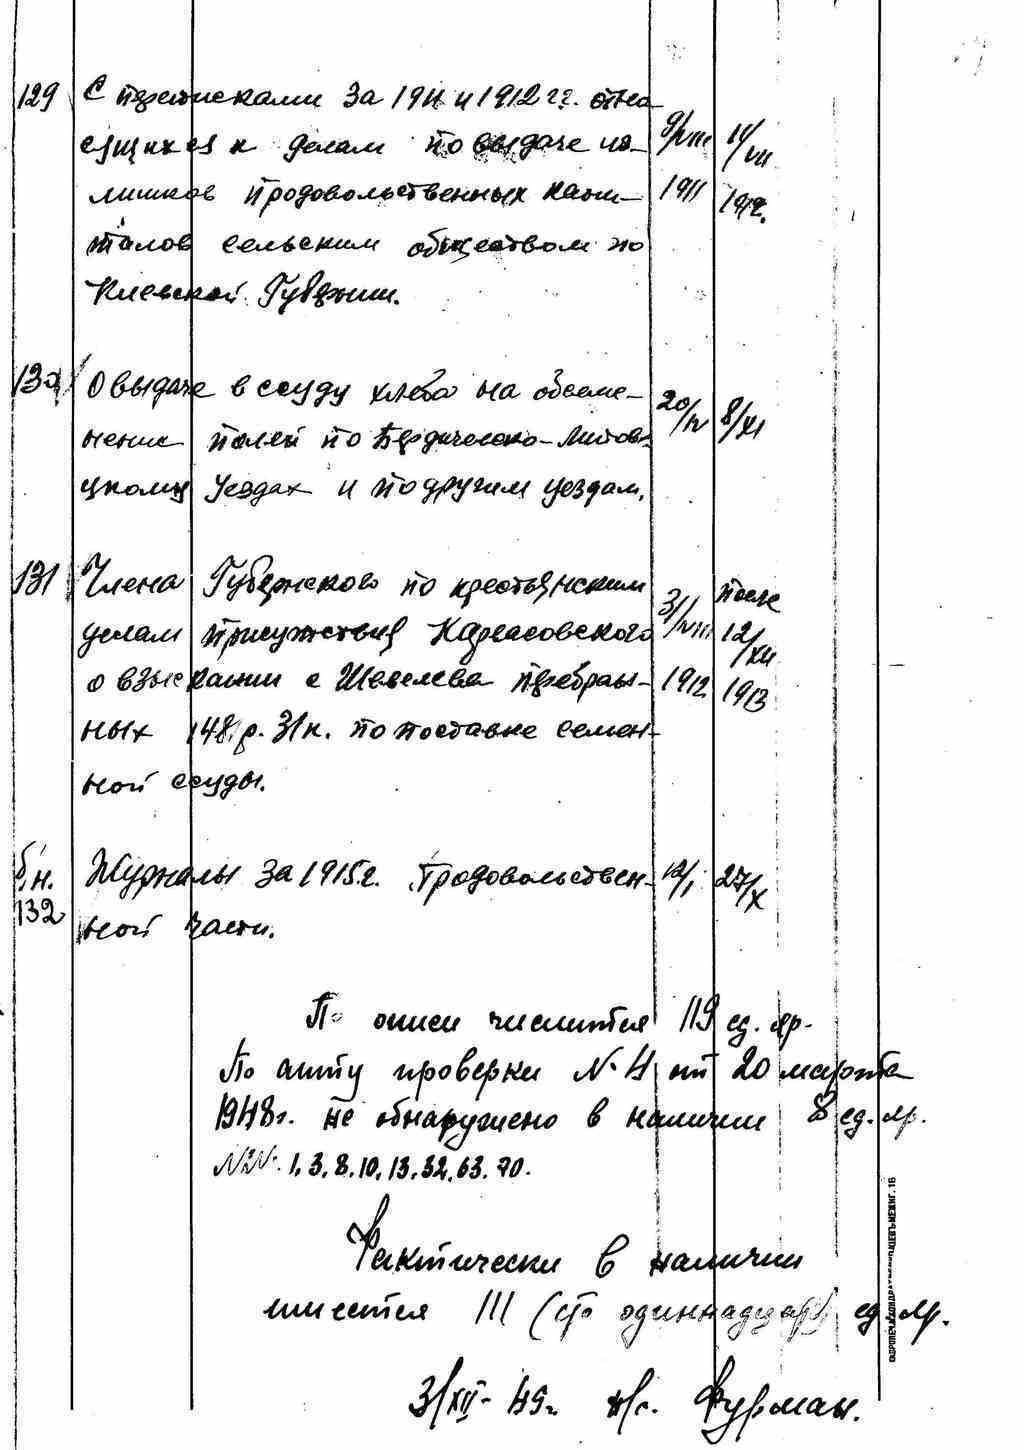 129 С переписками за 1911 и 1912 гг. отно- 9/VIII 11/VII
сящихся к делам по выдаче из-
лишков продовольственных капи- 1911 1912.
талов сельским обществом по
Киевской Губернии.
130 О выдаче в ссуду хлеба на обсеме- 20/IV 8/XI
нение полей по Бердическо-Липов-
цкому Уездах и по другим уездам.
131 Члена Губернского по крестьянским 3/VIII после
делам присутствия Карсасовского 12/XII
о взыскании с Шевелева перебран- 1912 1913
ных 148 р. 31 к. по поставке семен-
ной ссуды.
б.н. Журналы за 1915 г. Продовольствен- 12/I 27/X
132 ной части.
По описи числится 119 ед. хр.
По акту проверки № 4 от 20 марта
1948 г. не обнаружено в наличии 8 ед. хр.
№№ 1, 3, 8, 10, 13, 32, 63, 70.
Фактически в наличии
имеется 111 (сто одиннадцать) ед. хр.
3/XII-49 г. н/с. Фурман.